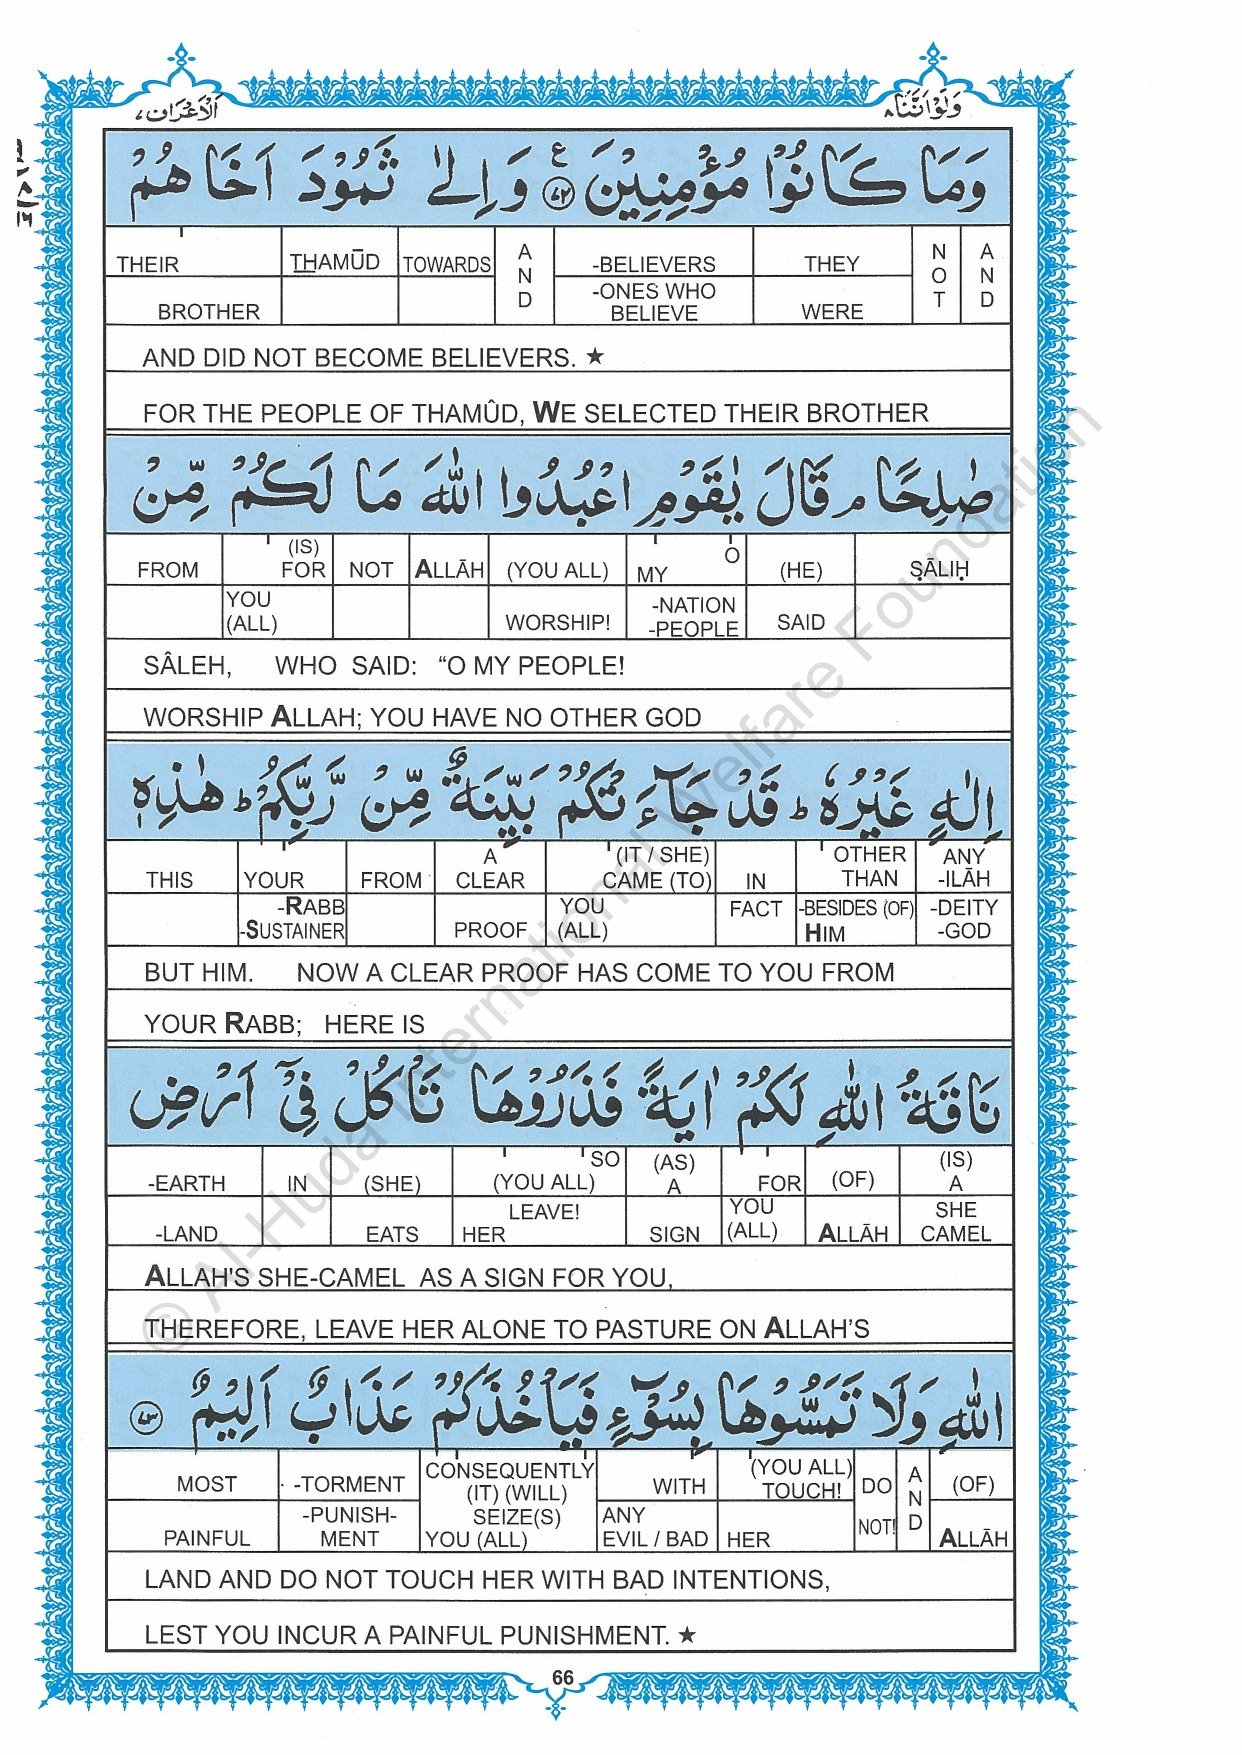 اَلْاَعْرَاف٧ وَلَوْ اَنَّنَا٨
وَمَا كَانُوْا مُؤْمِنِيْنَ ﴿٧٢﴾ ع وَ اِلٰى ثَمُوْدَ اَخَاهُمْ
THEIR THAMŪD TOWARDS AND -BELIEVERS THEY NOT AND
BROTHER -ONES WHO BELIEVE WERE
AND DID NOT BECOME BELIEVERS. ★
FOR THE PEOPLE OF THAMÛD, WE SELECTED THEIR BROTHER
صٰلِحًا م قَالَ يٰقَوْمِ اعْبُدُوا اللّٰهَ مَا لَكُمْ مِّنْ
FROM (IS) FOR NOT ALLĀH (YOU ALL) MY O (HE) ṢĀLIḤ
YOU (ALL) WORSHIP! -NATION -PEOPLE SAID
SÂLEH, WHO SAID: “O MY PEOPLE!
WORSHIP ALLAH; YOU HAVE NO OTHER GOD
اِلٰهٍ غَيْرُهٗ ط قَدْ جَآءَتْكُمْ بَيِّنَةٌ مِّنْ رَّبِّكُمْ ط هٰذِهٖ
THIS YOUR FROM A CLEAR (IT / SHE) CAME (TO) IN OTHER THAN ANY -ILĀH
-RABB -SUSTAINER PROOF YOU (ALL) FACT -BESIDES (OF) HIM -DEITY -GOD
BUT HIM. NOW A CLEAR PROOF HAS COME TO YOU FROM
YOUR RABB; HERE IS
نَاقَةُ اللّٰهِ لَكُمْ اٰيَةً فَذَرُوْهَا تَاْكُلْ فِيْٓ اَرْضِ
-EARTH IN (SHE) SO (YOU ALL) (AS) A FOR (OF) (IS) A
-LAND EATS LEAVE! HER SIGN YOU (ALL) ALLĀH SHE CAMEL
ALLAH'S SHE-CAMEL AS A SIGN FOR YOU,
THEREFORE, LEAVE HER ALONE TO PASTURE ON ALLAH’S
اللّٰهِ وَلَا تَمَسُّوْهَا بِسُوْٓءٍ فَيَاْخُذَكُمْ عَذَابٌ اَلِيْمٌ ﴿٧٣﴾
MOST -TORMENT CONSEQUENTLY (IT) (WILL) WITH (YOU ALL) TOUCH! DO AND (OF)
PAINFUL -PUNISH-MENT SEIZE(S) YOU (ALL) ANY EVIL / BAD HER NOT! ALLĀH
LAND AND DO NOT TOUCH HER WITH BAD INTENTIONS,
LEST YOU INCUR A PAINFUL PUNISHMENT. ★
66
© Al-Huda International Welfare Foundation